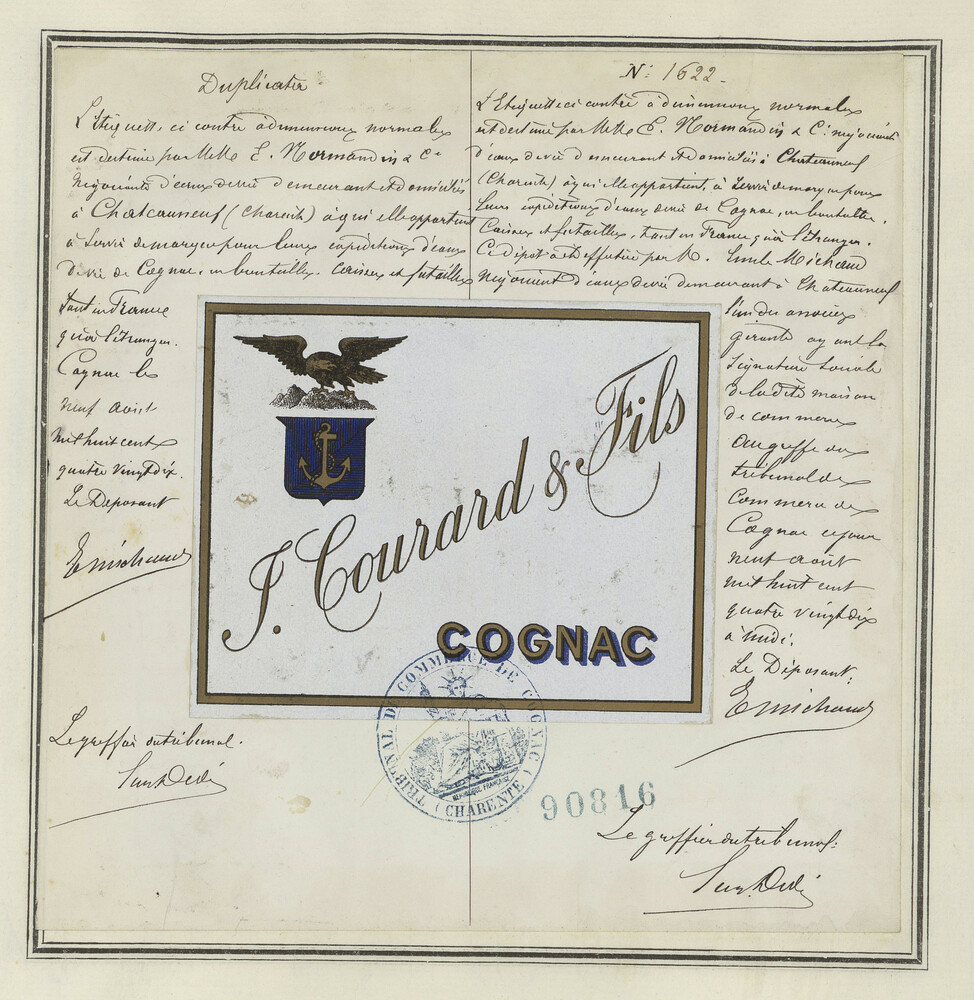 Duplicata
L'Etiquette ci contre à dimensions normales
est destinée par M.M. E. Normandin & Cie
négociants d'eaux de vie demeurant et domiciliés
à Chateauneuf (Charente) à qui elle appartient
à servir de marque pour leurs expéditions d'eaux
de vie de Cognac, en bouteilles, caisses et futailles
tant en France
qu'à l'étranger.
Cognac le
neuf août
mil huit cent
quatre vingt dix.
Le Déposant
E Michaud
Le greffier du tribunal.
N° 1622.
L'Etiquette ci contre à dimensions normales
est destinée par M.M. E. Normandin & Cie négociants
d'eaux de vie demeurant et domiciliés à Chateauneuf
(Charente) à qui elle appartient, à servir de marque pour
leurs expéditions d'eaux de vie de Cognac, en bouteilles,
caisses et futailles, tant en France qu'à l'étranger.
Ce dépôt a été effectué par M. Emile Michaud
négociant d'eaux de vie demeurant à Chateauneuf
l'un des associés
gérants ayant la
signature sociale
de la dite maison
de commerce
au greffe du
tribunal de
commerce de
Cognac ce jour
neuf août
mil huit cent
quatre vingt dix
à midi.
Le Déposant:
E Michaud
J. Courard & Fils
COGNAC
TRIBUNAL DE COMMERCE DE COGNAC
(CHARENTE)
RÉPUBLIQUE FRANÇAISE
90816
Le greffier du tribunal: